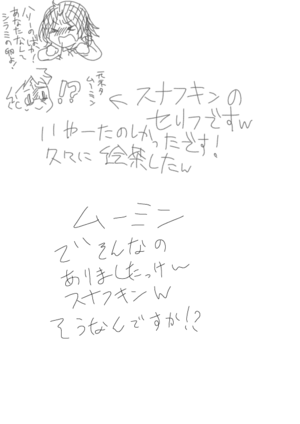 ハリーのばか!
あなたなんて
シラミの卵よ!
元ネタ
ムーミン
!?
← スナフキンの
セリフですw
いやーたのしかったです!
久々に絵茶したw
ムーミン
でそんなの
ありましたっけw
スナフキンw
そうなんですか!?